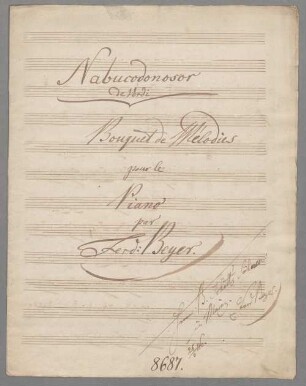 Nabucodonosor
de Verdi
Bouquet de Mélodies
pour le
Piano
par
Ferd: Beyer.
8687.